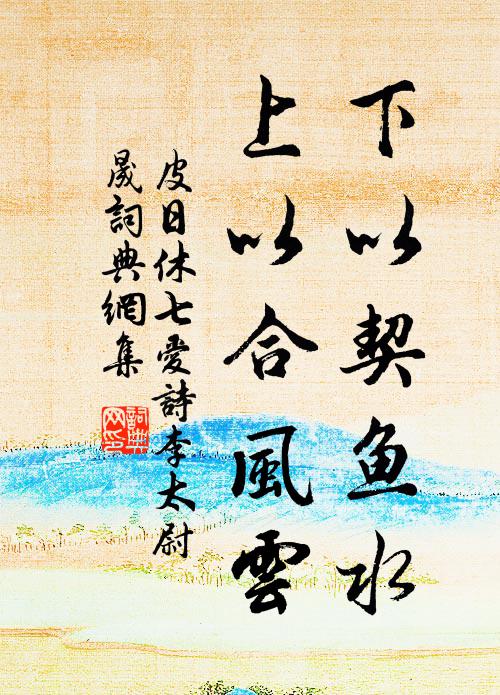 下以契鱼水
上以合風雲
皮日休七愛詩李太尉
晟詞典網集
詞典
网印